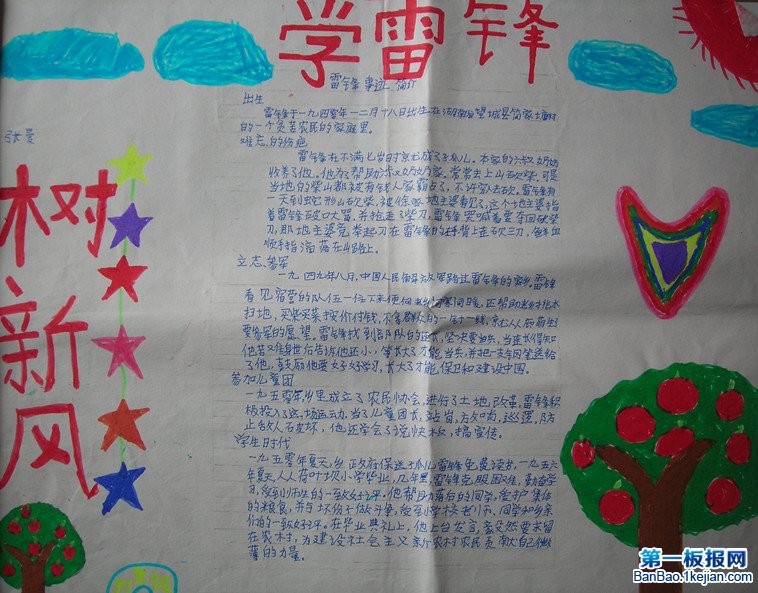 学雷锋
雷锋事迹简介
张曼
树新风
出生
雷锋于一九四零年一二月十八日出生在湖南省望城县简家塘村
的一个贫苦农民的家庭里。
难忘的伤疤
雷锋在不满七岁时就成了孤儿。本家的六叔奶奶
收养了他。他为了帮助六叔奶奶家。常常去上山砍柴。可是
当地的柴山都被有钱人家霸占了，不许穷人去砍。雷锋有
一天到蛇形山砍柴，被徐家地主婆看见了，这个地主婆指
着雷锋破口大骂，并抢走了柴刀，雷锋哭喊着要夺回砍柴
刀，那地主婆竟举起刀在雷锋的左手背上连砍三刀，鲜血
顺手指滴落在山路上。
立志、参军
一九四九年八月，中国人民解放军路过雷锋的家乡，雷锋
看见宿营的队伍一住下来便向乡亲问寒问暖，还帮助老乡挑水
扫地，买柴买菜按价付钱，不拿群众的一针一线，
要参军的愿望。雷锋找到部队的连长，坚决要当兵，当连长得知
他苦难身世后告诉他还小，等长大了才能当兵，并把一支钢笔送给
了他，鼓励他要好好学习，长大了才能保卫和建设中国。
参加儿童团
一九五零年，乡里成立了农民协会，进行了土地改革，雷锋积
极投入了这场运动，当了儿童团长，站岗，放哨，巡逻，防
止敌人破坏，他还学会了说快板，搞宣传。
学生时代
一九五零年夏天，乡政府保送孤儿雷锋免费读书，一九五六
年夏天，荷叶坝小学毕业，几年里，雷锋克服困难，勤奋学
习，受到师生的一致好评。他帮助落后的同学，爱护集体
的粮食，并与坏分子做斗争，受到学校老师、同学和乡亲
们的一致好评。在毕业典礼上，他上台发言，毅然要求留
在农村，为建设社会主义新农村农民贡献自己微
薄的力量。
第一板报网
BanBao.1kejian.com